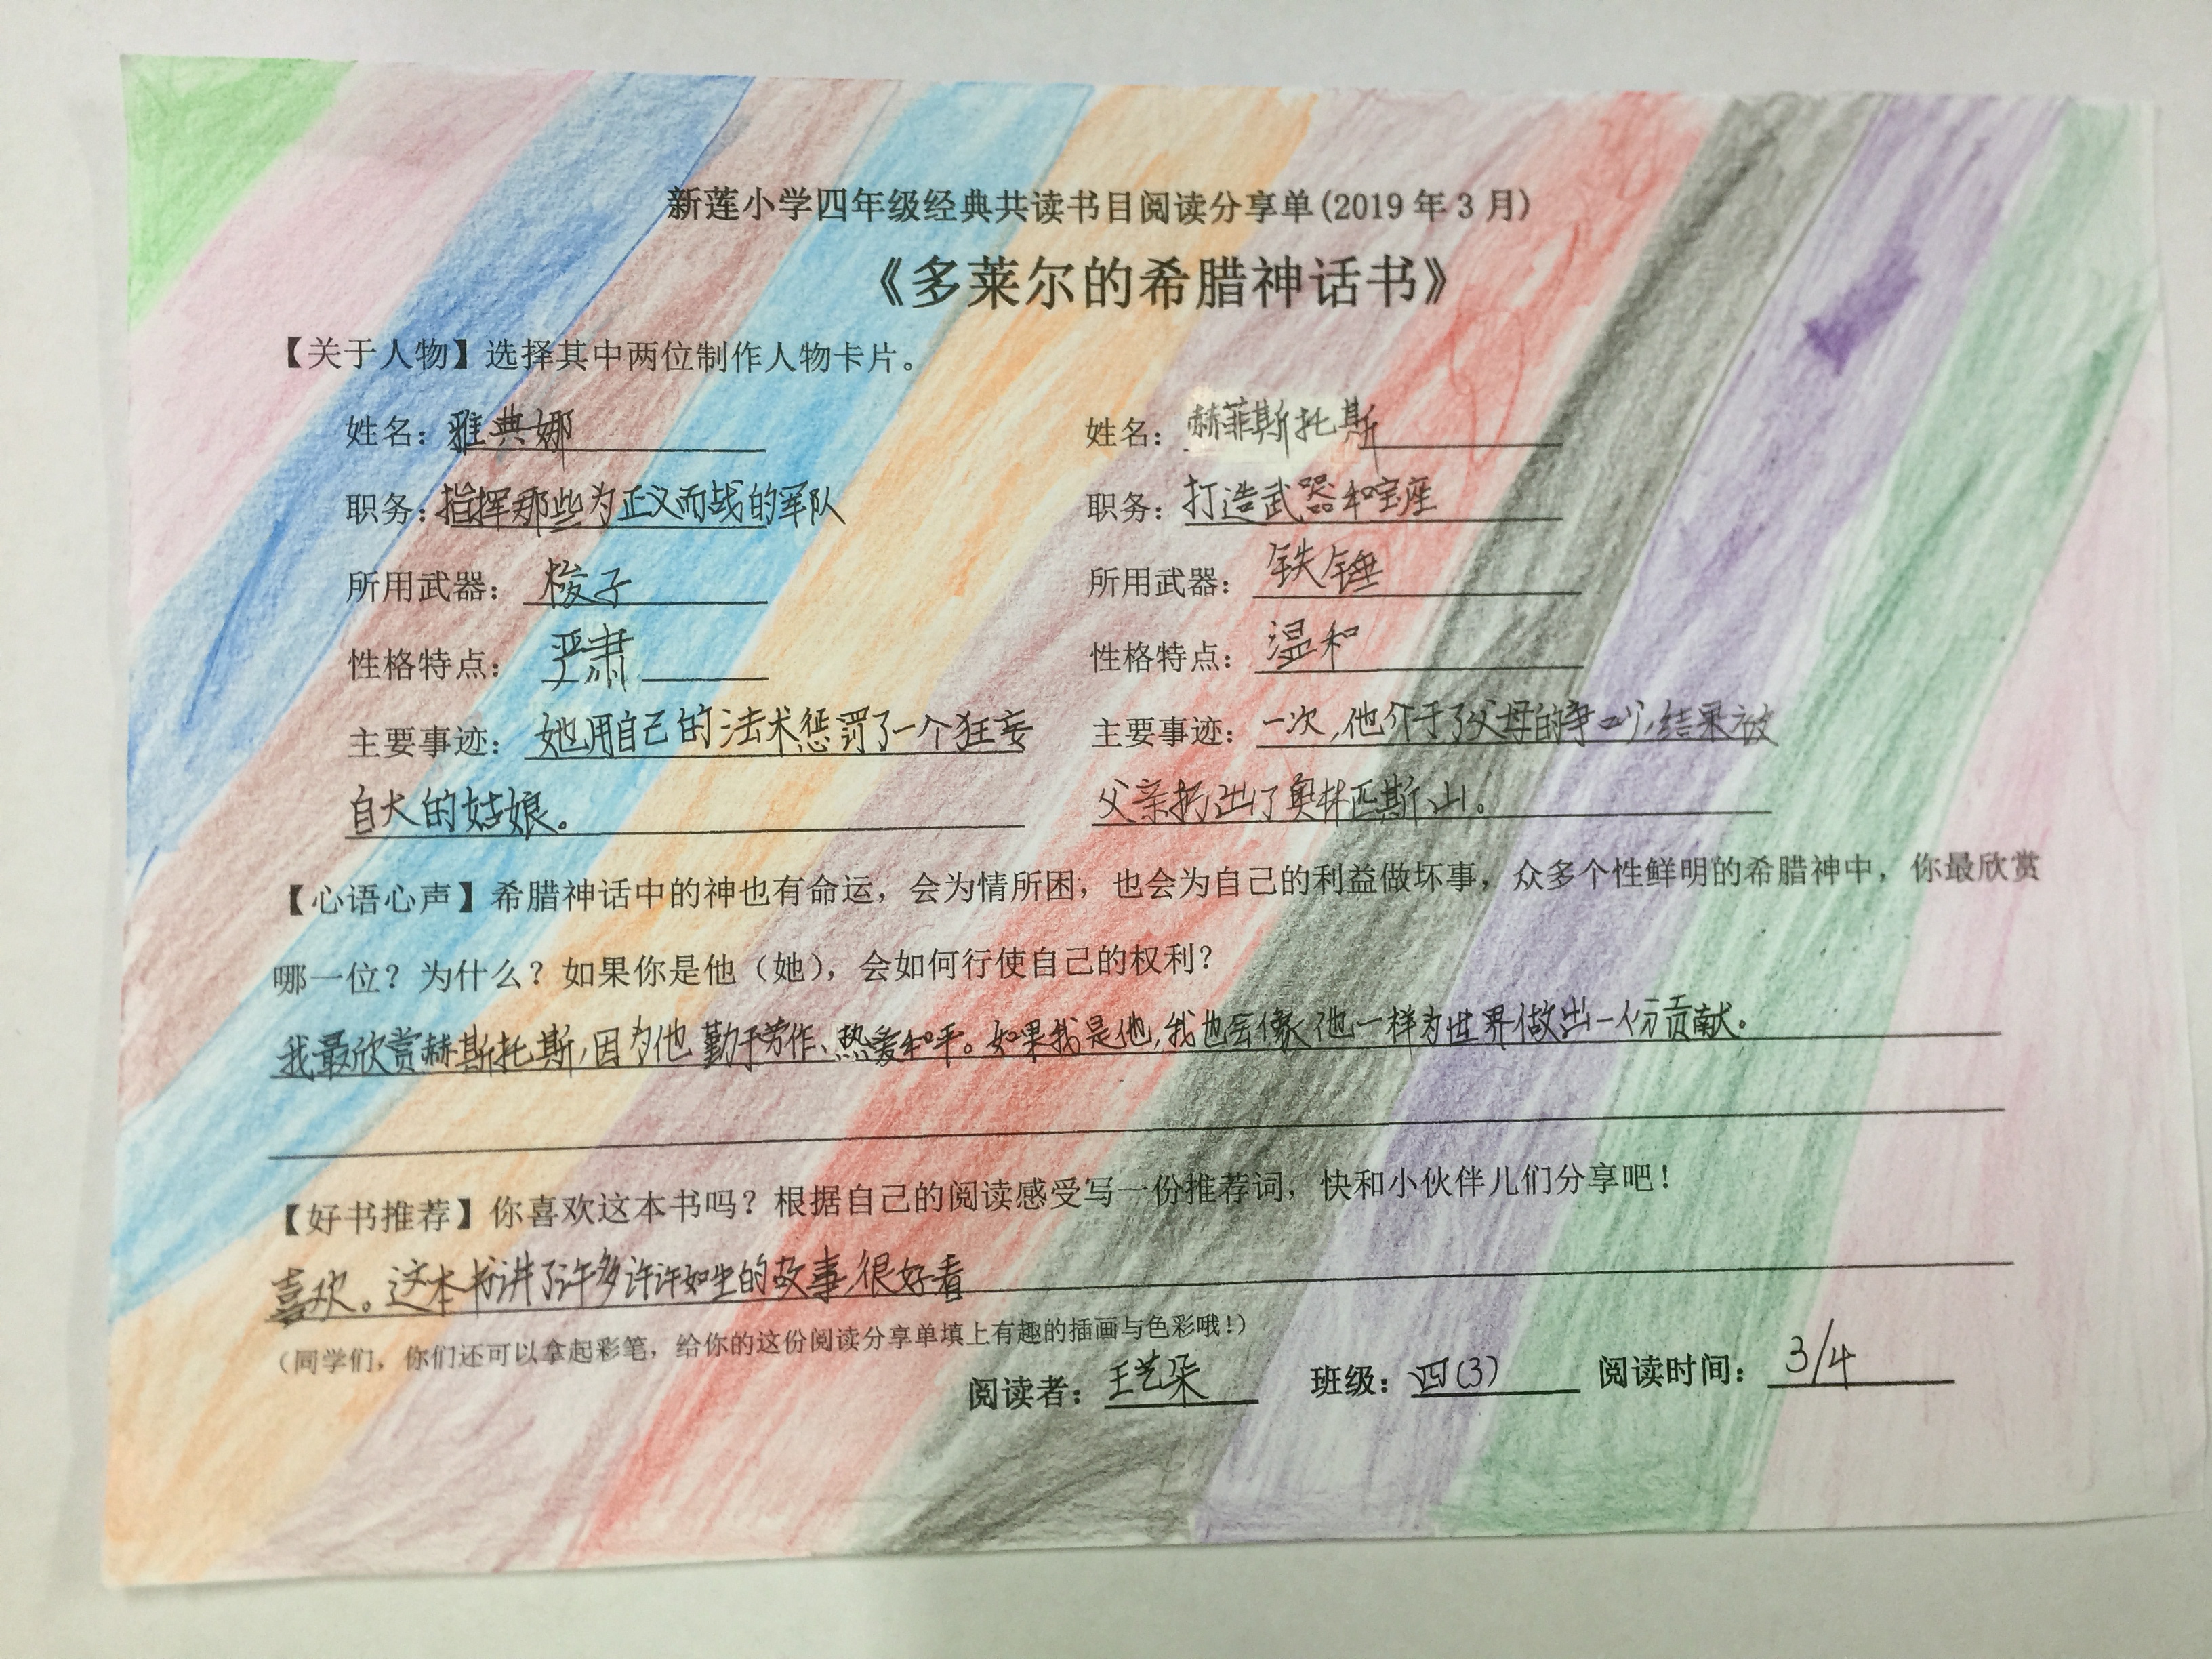 新莲小学四年级经典共读书目阅读分享单(2019年3月)
《多莱尔的希腊神话书》
【关于人物】选择其中两位制作人物卡片。
姓名：雅典娜 姓名：赫菲斯托斯
职务：指挥那些为正义而战的军队 职务：打造武器和宝座
所用武器：梭子 所用武器：铁锤
性格特点：严肃 性格特点：温和
主要事迹：她用自己的法术惩罚了一个狂妄 主要事迹：一次,他介于了父母的争吵,结果被
自大的姑娘。 父亲扔出了奥林匹斯山。
【心语心声】希腊神话中的神也有命运，会为情所困，也会为自己的利益做坏事，众多个性鲜明的希腊神中，你最欣赏
哪一位？为什么？如果你是他（她），会如何行使自己的权利？
我最欣赏赫斯托斯,因为他勤于劳作、热爱和平。如果我是他,我也会像他一样为世界做出一份贡献。
【好书推荐】你喜欢这本书吗？根据自己的阅读感受写一份推荐词，快和小伙伴儿们分享吧！
喜欢。这本书讲了许多许许如生的故事,很好看
（同学们，你们还可以拿起彩笔，给你的这份阅读分享单填上有趣的插画与色彩哦！）
阅读者：王艺朵 班级：四(3) 阅读时间：3/4